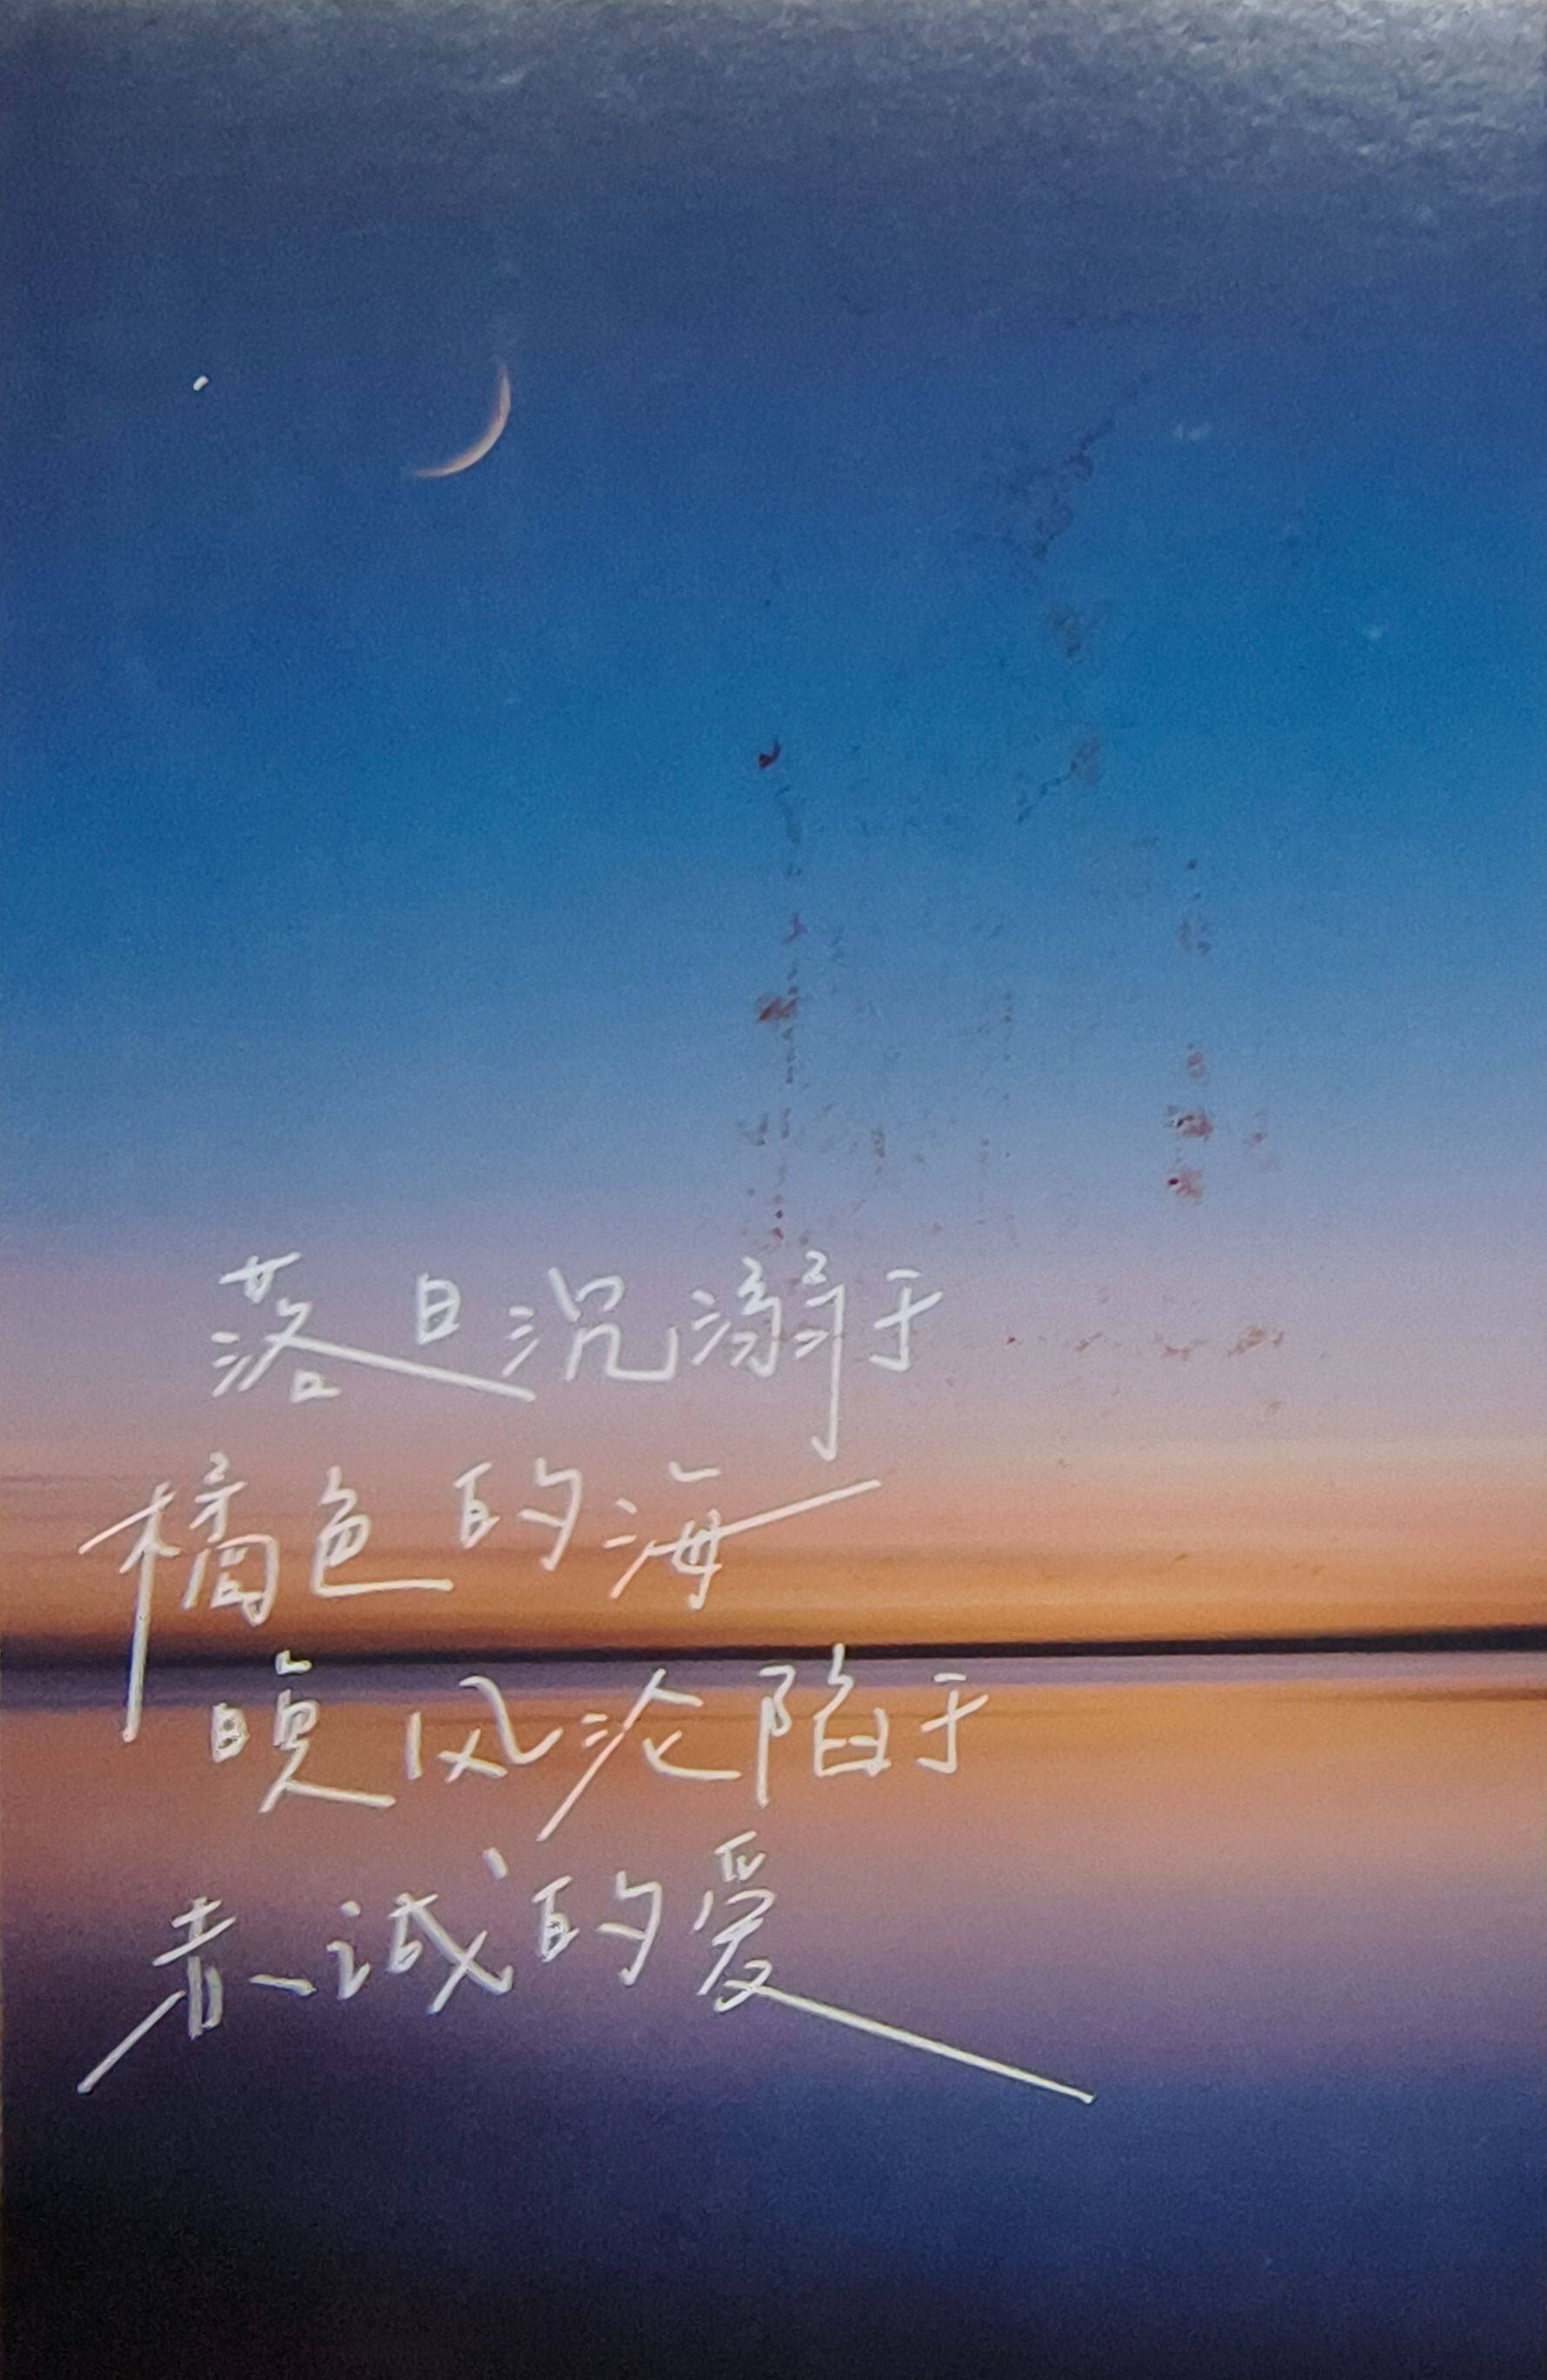 落日沉溺于
橘色的海
晚风沦陷于
赤诚的爱